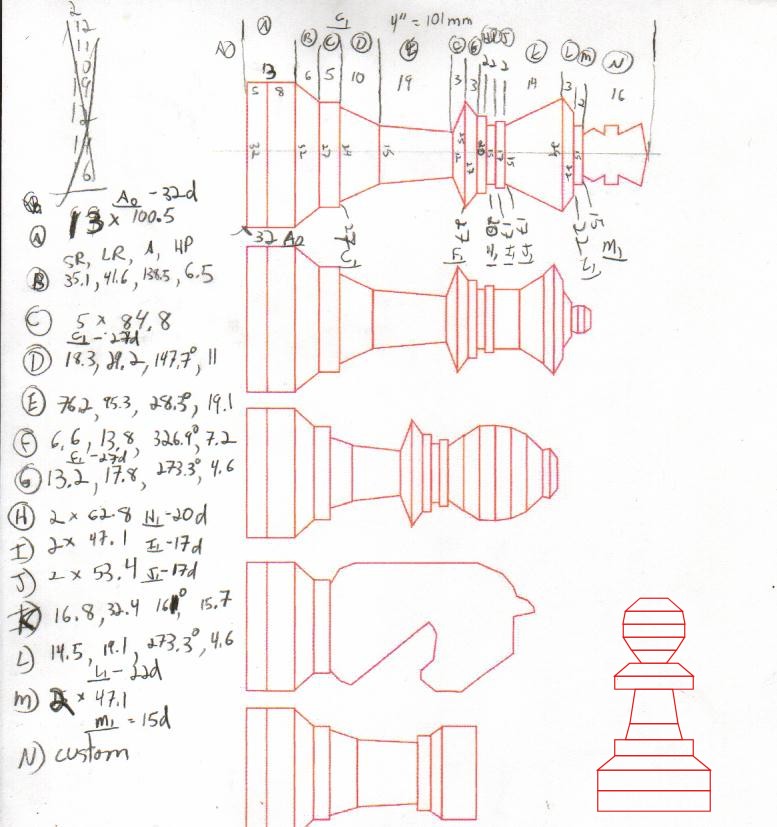 2
12
11
10
19
12
14
6
A0 - 32d
13 x 100.5
A
SR, LR, A, HP
B 35.1, 41.6, 138.5, 6.5
C 5 x 84.8
C1 - 27d
D 18.3, 29.2, 147.7°, 11
E 76.2, 95.3, 28.3°, 19.1
F 6.6, 13.8, 326.9°, 7.2
F1 - 27d
G 13.2, 17.8, 273.3°, 4.6
H 2 x 62.8 H1 - 20d
I) 2 x 47.1 I1 - 17d
J) 2 x 53.4 J1 - 17d
K 16.8, 32.4 161° 15.7
L) 14.5, 19.1, 273.3°, 4.6
L1 - 22d
M) 2 x 47.1
M1 = 15d
N) custom
C1 4" = 101mm
A B C D E F G H I J K L M N
13 6 5 10 19 3 3 2 2 2 19 3 2 16
5 8
32 32 27 24 15 25 12 27 20 15 17 15 29 22 15
32 A0 27 C1 27 F1 20 H1 17 I1 17 J1 22 L1 15 M1